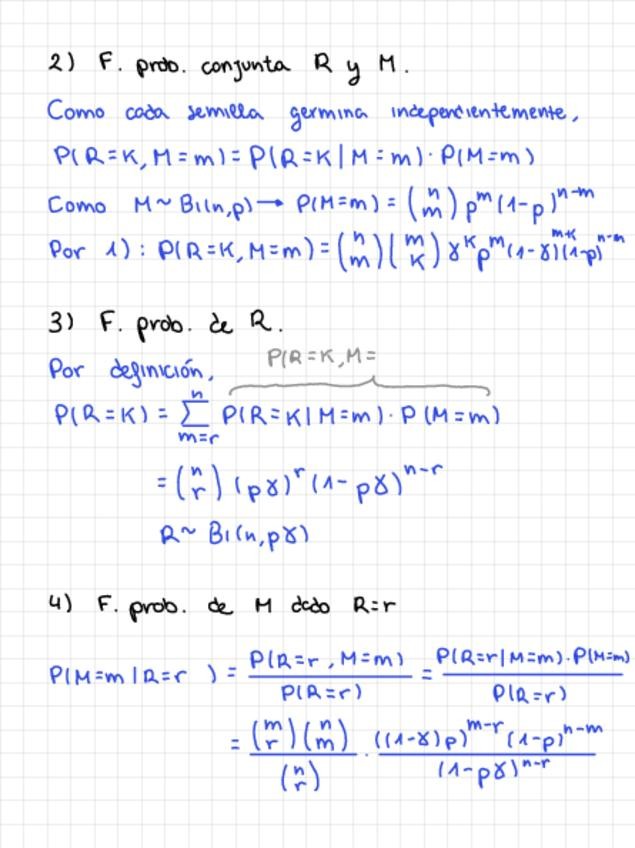 2) F. prob. conjunta R y M.
Como cada semilla germina independientemente,
P(R=K, M=m) = P(R=K | M=m) · P(M=m)
Como M ~ Bi(n,p) → P(M=m) = (n m) p^m (1-p)^{n-m}
Por 1) : P(R=K, M=m) = (n m) (m K) γ^K p^m (1-γ)^{m-K} (1-p)^{n-m}
3) F. prob. de R.
Por definición,
P(R=K, M=
P(R=K) = Σ_{m=r}^{n} P(R=K | M=m) · P(M=m)
= (n r) (pγ)^r (1-pγ)^{n-r}
R ~ Bi(n, pγ)
4) F. prob. de M dado R=r
P(M=m | R=r ) = P(R=r, M=m) / P(R=r) = P(R=r | M=m) · P(M=m) / P(R=r)
= (m r) (n m) / (n r) · ((1-γ)p)^{m-r} (1-p)^{n-m} / (1-pγ)^{n-r}